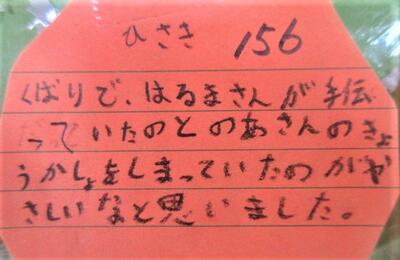 ひさき 156
くばりで、はるまさんが手伝
っていたのとのあさんのきょ
うかしょをしまっていたのがや
さしいなと思いました。